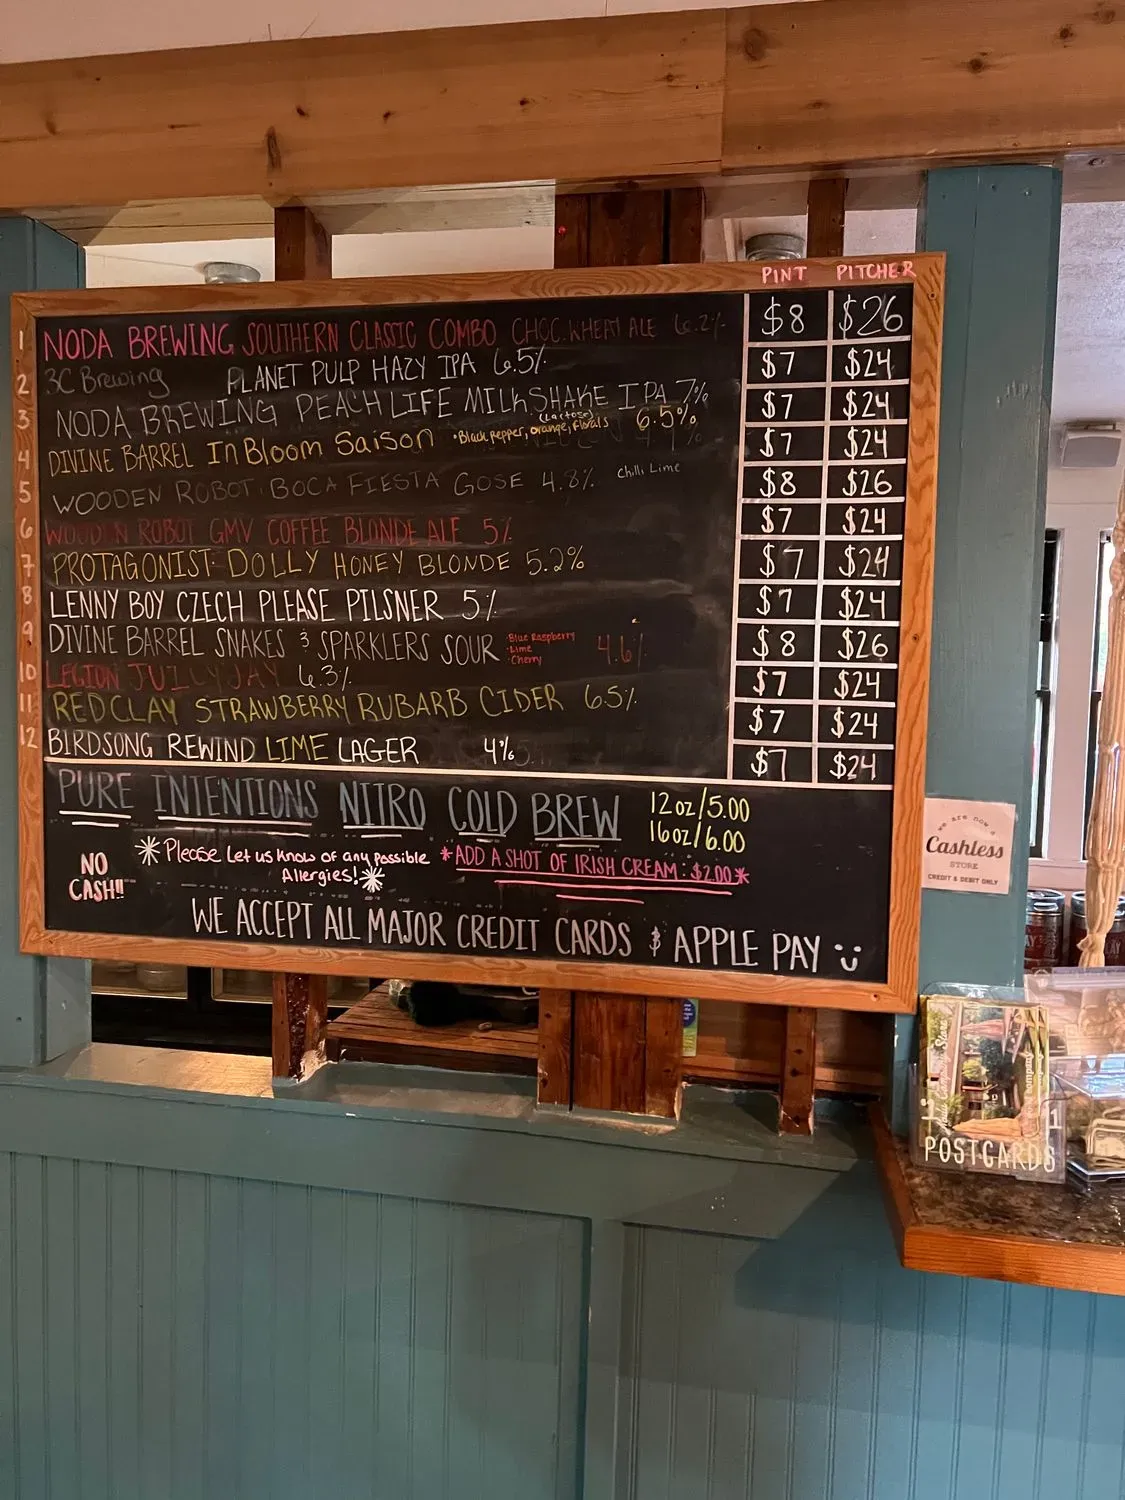 PINT PITCHER
1 NODA BREWING SOUTHERN CLASSIC COMBO CHOC. WHEAT ALE 6.2% $8 $26
2 3C Brewing PLANET PULP HAZY IPA 6.5% $7 $24
3 NODA BREWING PEACH LIFE MILKSHAKE IPA 7% $7 $24
(Lactose)
4 DIVINE BARREL In Bloom Saison •Black pepper, orange, florals 6.5% $7 $24
5 WOODEN ROBOT BOCA FIESTA GOSE 4.8% Chilli Lime $8 $26
6 WOODEN ROBOT GMV COFFEE BLONDE ALE 5% $7 $24
7 PROTAGONIST: DOLLY HONEY BLONDE 5.2% $7 $24
8 LENNY BOY CZECH PLEASE PILSNER 5% $7 $24
9 DIVINE BARREL SNAKES & SPARKLERS SOUR •Blue Raspberry •Lime •Cherry 4.6% $8 $26
10 LEGION JUICY JAY 6.3% $7 $24
11 RED CLAY STRAWBERRY RUBARB CIDER 6.5% $7 $24
12 BIRDSONG REWIND LIME LAGER 4% $7 $24
PURE INTENTIONS NITRO COLD BREW 12oz/5.00
16oz/6.00
*Please Let us know of any possible
Allergies!*
*ADD A SHOT OF IRISH CREAM: $2.00*
NO
CASH!!
WE ACCEPT ALL MAJOR CREDIT CARDS & APPLE PAY
we are now a
Cashless
STORE
CREDIT & DEBIT ONLY
POSTCARDS